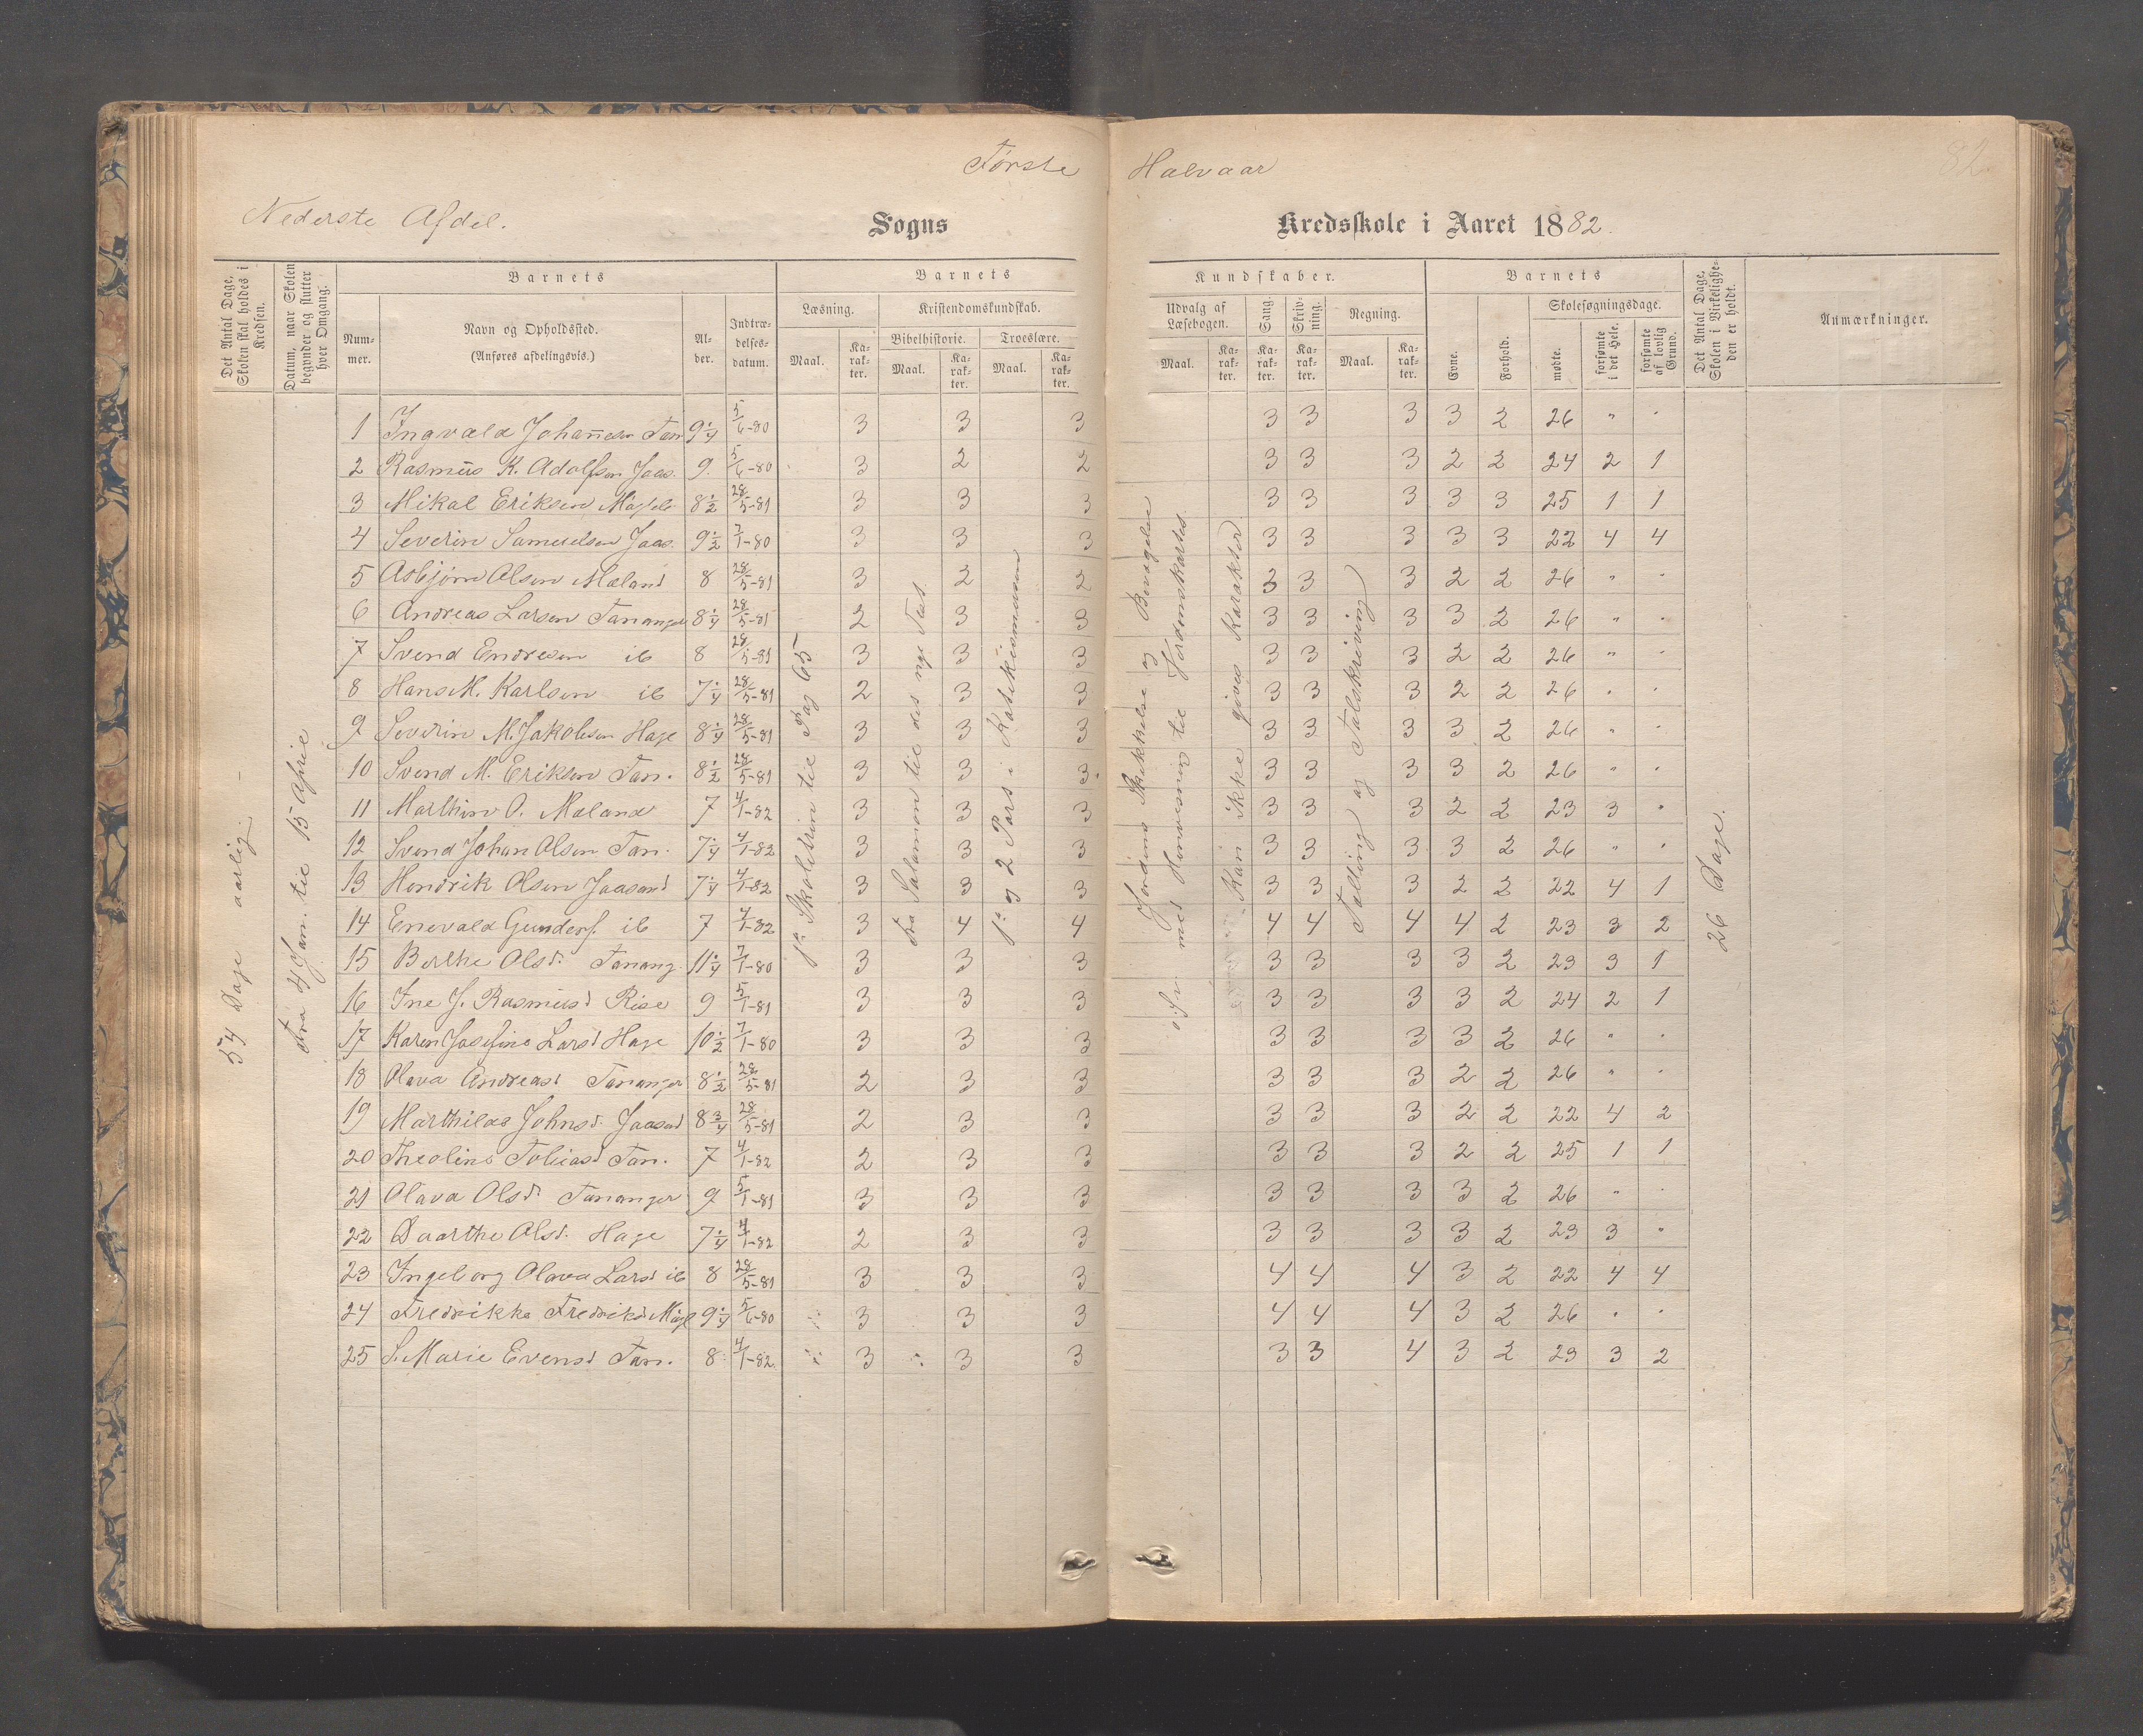 Første Halvaar
82.
Nederste Afdel. Sogns Kredsskole i Aaret 1882.
Det Antal Dage, Skolen skal holdes i Kredsen.
Datum, naar Skolen begynder og slutter hver Omgang.
Barnets
Nummer.
Navn og Opholdssted.
(Anføres afdelingsvis.)
Alder.
Indtrædelsesdatum.
Barnets
Læsning.
Maal.
Karakter.
Kristendomskundskab.
Bibelhistorie.
Maal.
Karakter.
Troeslære.
Maal.
Karakter.
Kundskaber.
Udvalg af Læsebogen.
Maal.
Karakter.
Sang.
Karakter.
Skrivning.
Karakter.
Regning.
Maal.
Karakter.
Barnets
Evne.
Forhold.
Skolesøgningsdage.
mødte.
forsømte i det Hele.
forsømte af lovlig Grund.
Det Antal Dage, Skolen i Virkeligheden er holdt.
Anmærkninger.
54 Dage aarlig.
Fra 4 Jan. til 15 April
Skoletrin til Pag 65
Fra Salamon til det nye Test.
1ste og 2 Part i Katekismussen
Jordens Skikkelse og Bevægelse
o.s.v. med Henvisning til Jordenskartet
Kan ikke gives Karakter
Tælling og Talskriving
26 Dage.
1 Ingvald Johannesen Tan 9 1/4 5/6-80 3 3 3 3 3 3 3 2 26 " "
2 Rasmus K. Adolfsen Jaas. 9 5/6-80 3 2 2 3 3 3 2 2 24 2 1
3 Mikal Eriksen 8 1/2 28/5-81 3 3 3 3 3 3 3 3 25 1 1
4 Severin Samuelsen Jaas. 9 1/2 7/1-80 3 3 3 3 3 3 3 3 22 4 4
5 Asbjørn Olsen Mæland 8 28/5-81 3 2 2 3 3 3 2 2 26 " "
6 Andreas Larsen Tananger 8 1/4 28/5-81 2 3 3 3 3 3 3 2 26 " "
7 Svend Endresen ib 8 28/5-81 3 3 3 3 3 3 2 2 26 " "
8 Hans M. Karlsen ib 7 1/4 28/5-81 2 3 3 3 3 3 2 2 26 " "
9 Severin M. Jakobsen Hage 8 1/4 28/5-81 3 3 3 3 3 3 3 2 26 " "
10 Svend M. Eriksen Tan. 8 1/2 28/5-81 3 3 3 3 3 3 3 2 26 " "
11 Marthin O. Mæland 7 4/1-82 3 3 3 3 3 3 2 2 23 3 "
12 Svend Johan Olsen Tan. 7 1/4 4/1-82 3 3 3 3 3 3 3 2 26 " "
13 Hendrik Olsen Jaasund 7 1/4 4/1-82 3 3 3 3 3 3 2 2 22 4 1
14 Enevald Gunders. ib 7 4/1-82 3 4 4 4 4 4 4 2 23 3 2
15 Berthe Olsd. Tanang. 11 1/4 7/1-80 3 3 3 3 3 3 3 2 23 3 1
16 Ine J. Rasmusd Rise 9 5/1-81 3 3 3 3 3 3 3 2 24 2 1
17 Karen Josefine Larsd Hage 10 1/2 7/1-80 3 3 3 3 3 3 3 2 26 " "
18 Olava Andreasd Tananger 8 1/2 28/5-81 2 3 3 3 3 3 2 2 26 " "
19 Marthilas Johnsd. Jaasund 8 3/4 28/5-81 2 3 3 3 3 3 2 2 22 4 2
20 Theoline Tobiasd Tan. 7 4/1-82 2 3 3 3 3 3 2 2 25 1 1
21 Olava Olsd. Tananger 9 5/1-81 3 3 3 3 3 3 3 2 26 " "
22 Daarthe Olsd. Hage 7 1/4 4/1-82 2 3 3 3 3 3 3 2 23 3 "
23 Ingeborg Olava Larsd ib 8 28/5-81 3 3 3 4 4 4 3 2 22 4 4
24 Fredrikke Fredriksd 9 1/4 5/6-80 3 3 3 4 4 4 3 2 26 " "
25 S. Marie Evensd Tan. 8 4/1-82 3 3 3 3 3 4 3 2 23 3 2